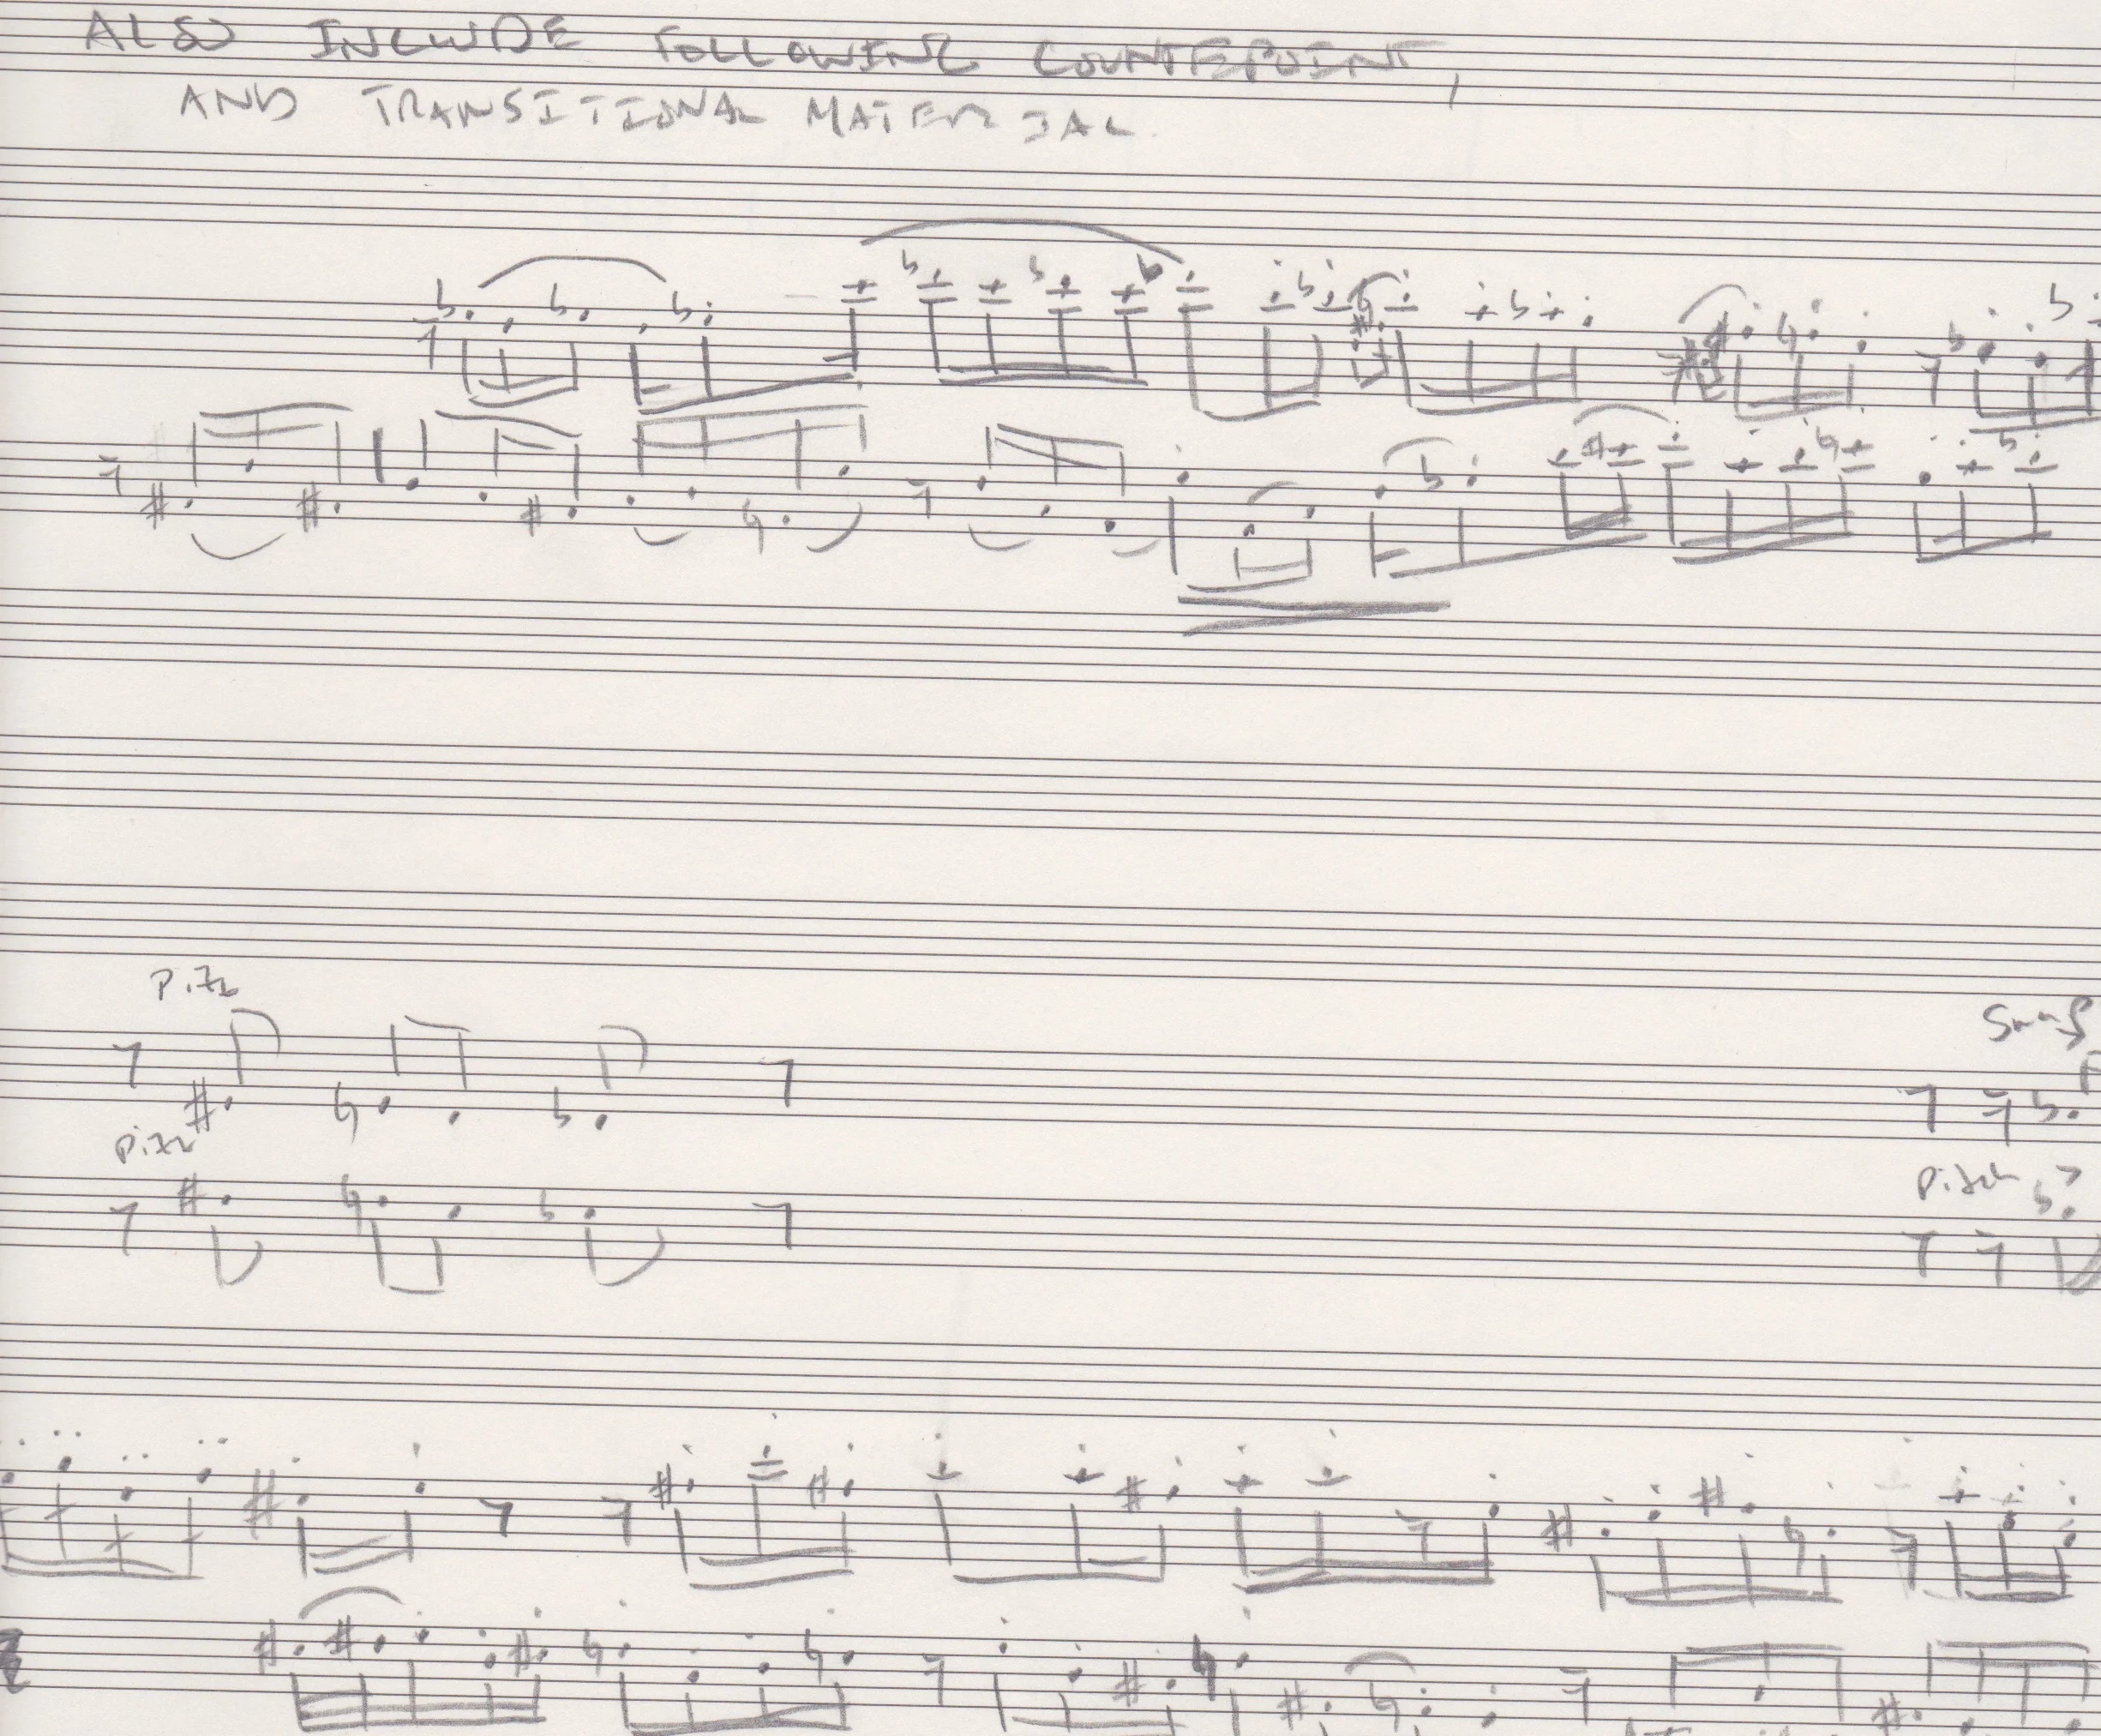 ALSO INCLUDE FOLLOWING COUNTERPOINT,
AND TRANSITIONAL MATERIAL.
Pizz
Pizz